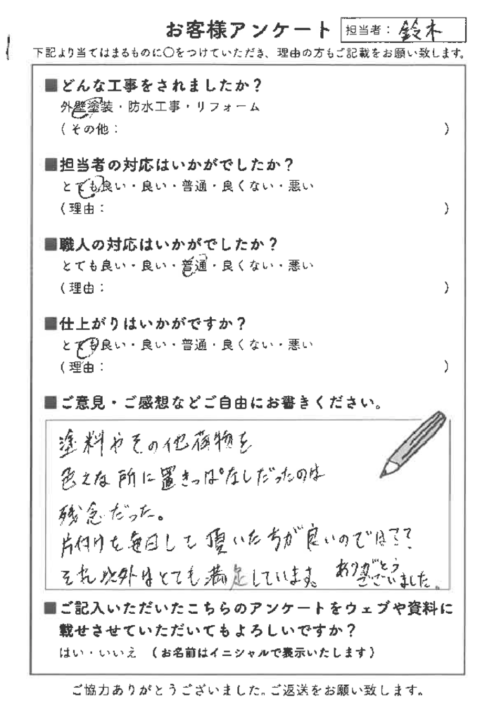 お客様アンケート 担当者： 鈴木
下記より当てはまるものに〇をつけていただき、理由の方もご記載をお願い致します。
■どんな工事をされましたか？
外壁塗装・防水工事・リフォーム
（その他： ）
■担当者の対応はいかがでしたか？
とても良い・良い・普通・良くない・悪い
（理由： ）
■職人の対応はいかがでしたか？
とても良い・良い・普通・良くない・悪い
（理由： ）
■仕上がりはいかがですか？
とても良い・良い・普通・良くない・悪い
（理由： ）
■ご意見・ご感想などご自由にお書きください。
塗料やその他荷物を
色んな所に置きっぱなしだったのは
残念だった。
片付けを毎日して頂いた方が良いのでは??
それ以外はとても満足しています。ありがとうございました。
■ご記入いただいたこちらのアンケートをウェブや資料に
載せさせていただいてもよろしいですか？
はい・いいえ （お名前はイニシャルで表示いたします）
ご協力ありがとうございました。ご返送をお願い致します。